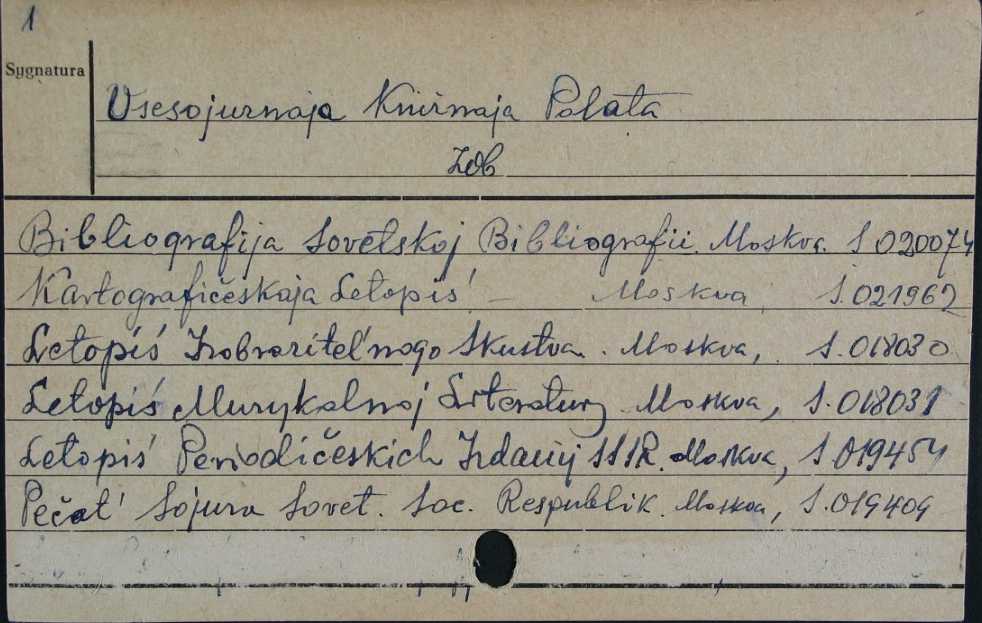 1
Sygnatura
Vsesojuznaja Knižnaja Palata
Zob
Bibliografija Sovetskoj Bibliografii. Moskva. S.020074
Kartografičeskaja Letopiś - Moskva S.021962
Letopiś Izobrazitel'nogo Iskustva. Moskva, S.018030
Letopiś Muzykalnoj Literatury Moskva, S.018031
Letopiś Periodičeskich Izdanij SSSR. Moskva, S.019454
Pečat' Sojuza Sovet. Soc. Respublik. Moskva, S.019409